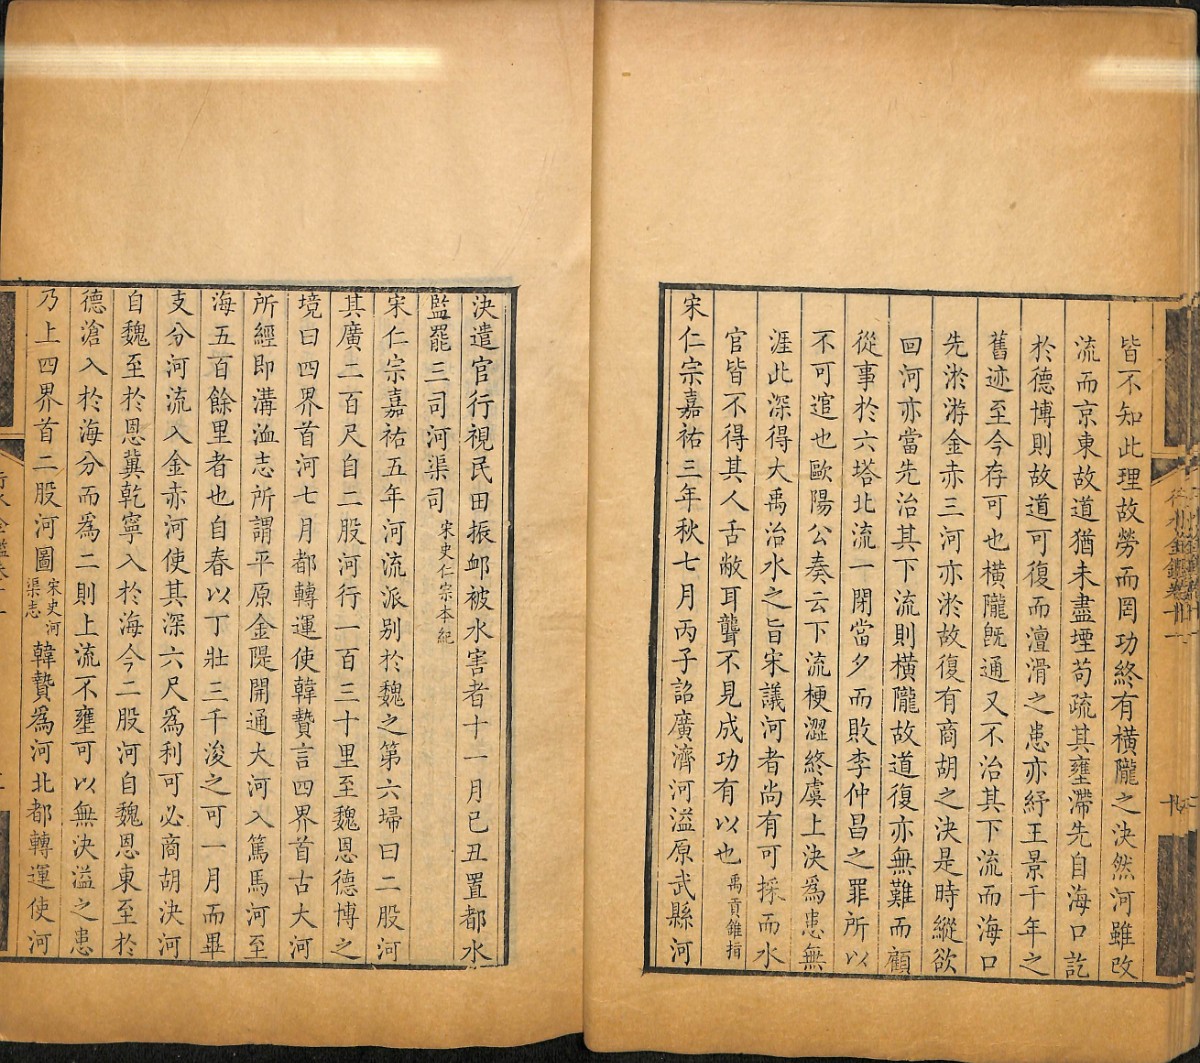 皆不知此理故勞而罔功終有橫隴之決然河雖改
流而京東故道猶未盡堙苟疏其壅滯先自海口訖
於德博則故道可復而澶滑之患亦紓王景千年之
舊迹至今存可也橫隴旣通又不治其下流而海口
先淤游金赤三河亦淤故復有商胡之決是時縱欲
回河亦當先治其下流則橫隴故道復亦無難而顧
從事於六塔北流一閉當夕而敗李仲昌之罪所以
不可逭也歐陽公奏云下流梗澀終虞上決爲患無
涯此深得大禹治水之旨宋議河者尚有可採而水
官皆不得其人舌敝耳聾不見成功有以也禹貢錐指
宋仁宗嘉祐三年秋七月丙子詔廣濟河溢原武縣河
決遣官行視民田振卹被水害者十一月已丑置都水
監罷三司河渠司宋史仁宗本紀
宋仁宗嘉祐五年河流派别於魏之第六埽曰二股河
其廣二百尺自二股河行一百三十里至魏恩德博之
境曰四界首河七月都轉運使韓贄言四界首古大河
所經即溝洫志所謂平原金隄開通大河入篤馬河至
海五百餘里者也自春以丁壯三千浚之可一月而畢
支分河流入金赤河使其深六尺爲利可必商胡決河
自魏至於恩冀乾寧入於海今二股河自魏恩東至於
德滄入於海分而爲二則上流不壅可以無決溢之患
乃上四界首二股河圖宋史河渠志韓贄爲河北都轉運使河